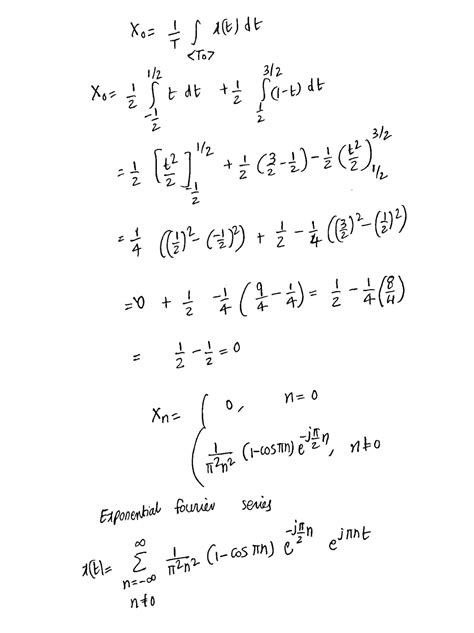 X₀ = 1/T ∫_{<T₀>} x(t) dt
X₀ = 1/2 ∫_{-1/2}^{1/2} t dt + 1/2 ∫_{1/2}^{3/2} (1-t) dt
= 1/2 [t²/2]_{-1/2}^{1/2} + 1/2 (3/2 - 1/2) - 1/2 (t²/2)_{1/2}^{3/2}
= 1/4 ((1/2)² - (-1/2)²) + 1/2 - 1/4 ((3/2)² - (1/2)²)
= 0 + 1/2 - 1/4 (9/4 - 1/4) = 1/2 - 1/4 (8/4)
= 1/2 - 1/2 = 0
Xn = { 0, n = 0
1/(π²n²) (1-cosπn) e^{-jπ/2 n}, n≠0
Exponential fourier series
x(t) = ∑_{n=-∞, n≠0}^{∞} 1/(π²n²) (1-cos πn) e^{-jπ/2 n} e^{jπnt}